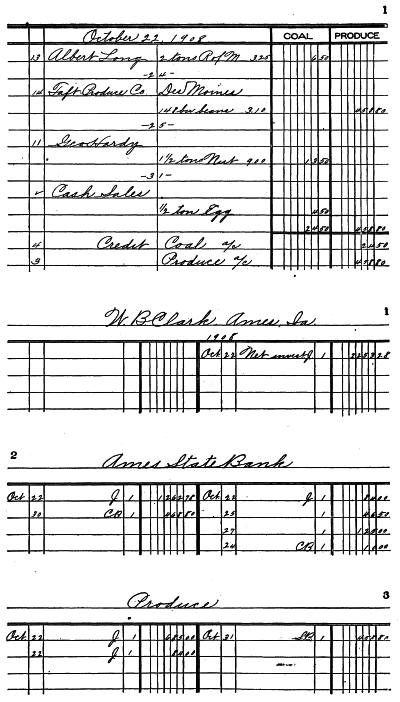 1
October 22, 1908 COAL PRODUCE
13 Albert Long 2 tons R of M 325 6 50
-24-
14 Taft Produce Co. Des Moines
148 bu beans 3.10 458 80
-25-
11 Geo Hardy
1½ ton Nut 900 13 50
-31-
✓ Cash Sales
½ ton Egg 4 50
24 50 458 80
4 Credit Coal a/c 24 50
3 Produce a/c 458 80
W. B. Clark, Ames, Ia. 1
1908
Oct 22 Net invest J 1
2
Ames State Bank
Oct 22 J 1 Oct 22 J 1
30 CR 1 468 80 25 1
27 1
24 CB 1
Produce 3
Oct 22 J 1 685 00 Oct 31 SB 1 458 80
22 J 1